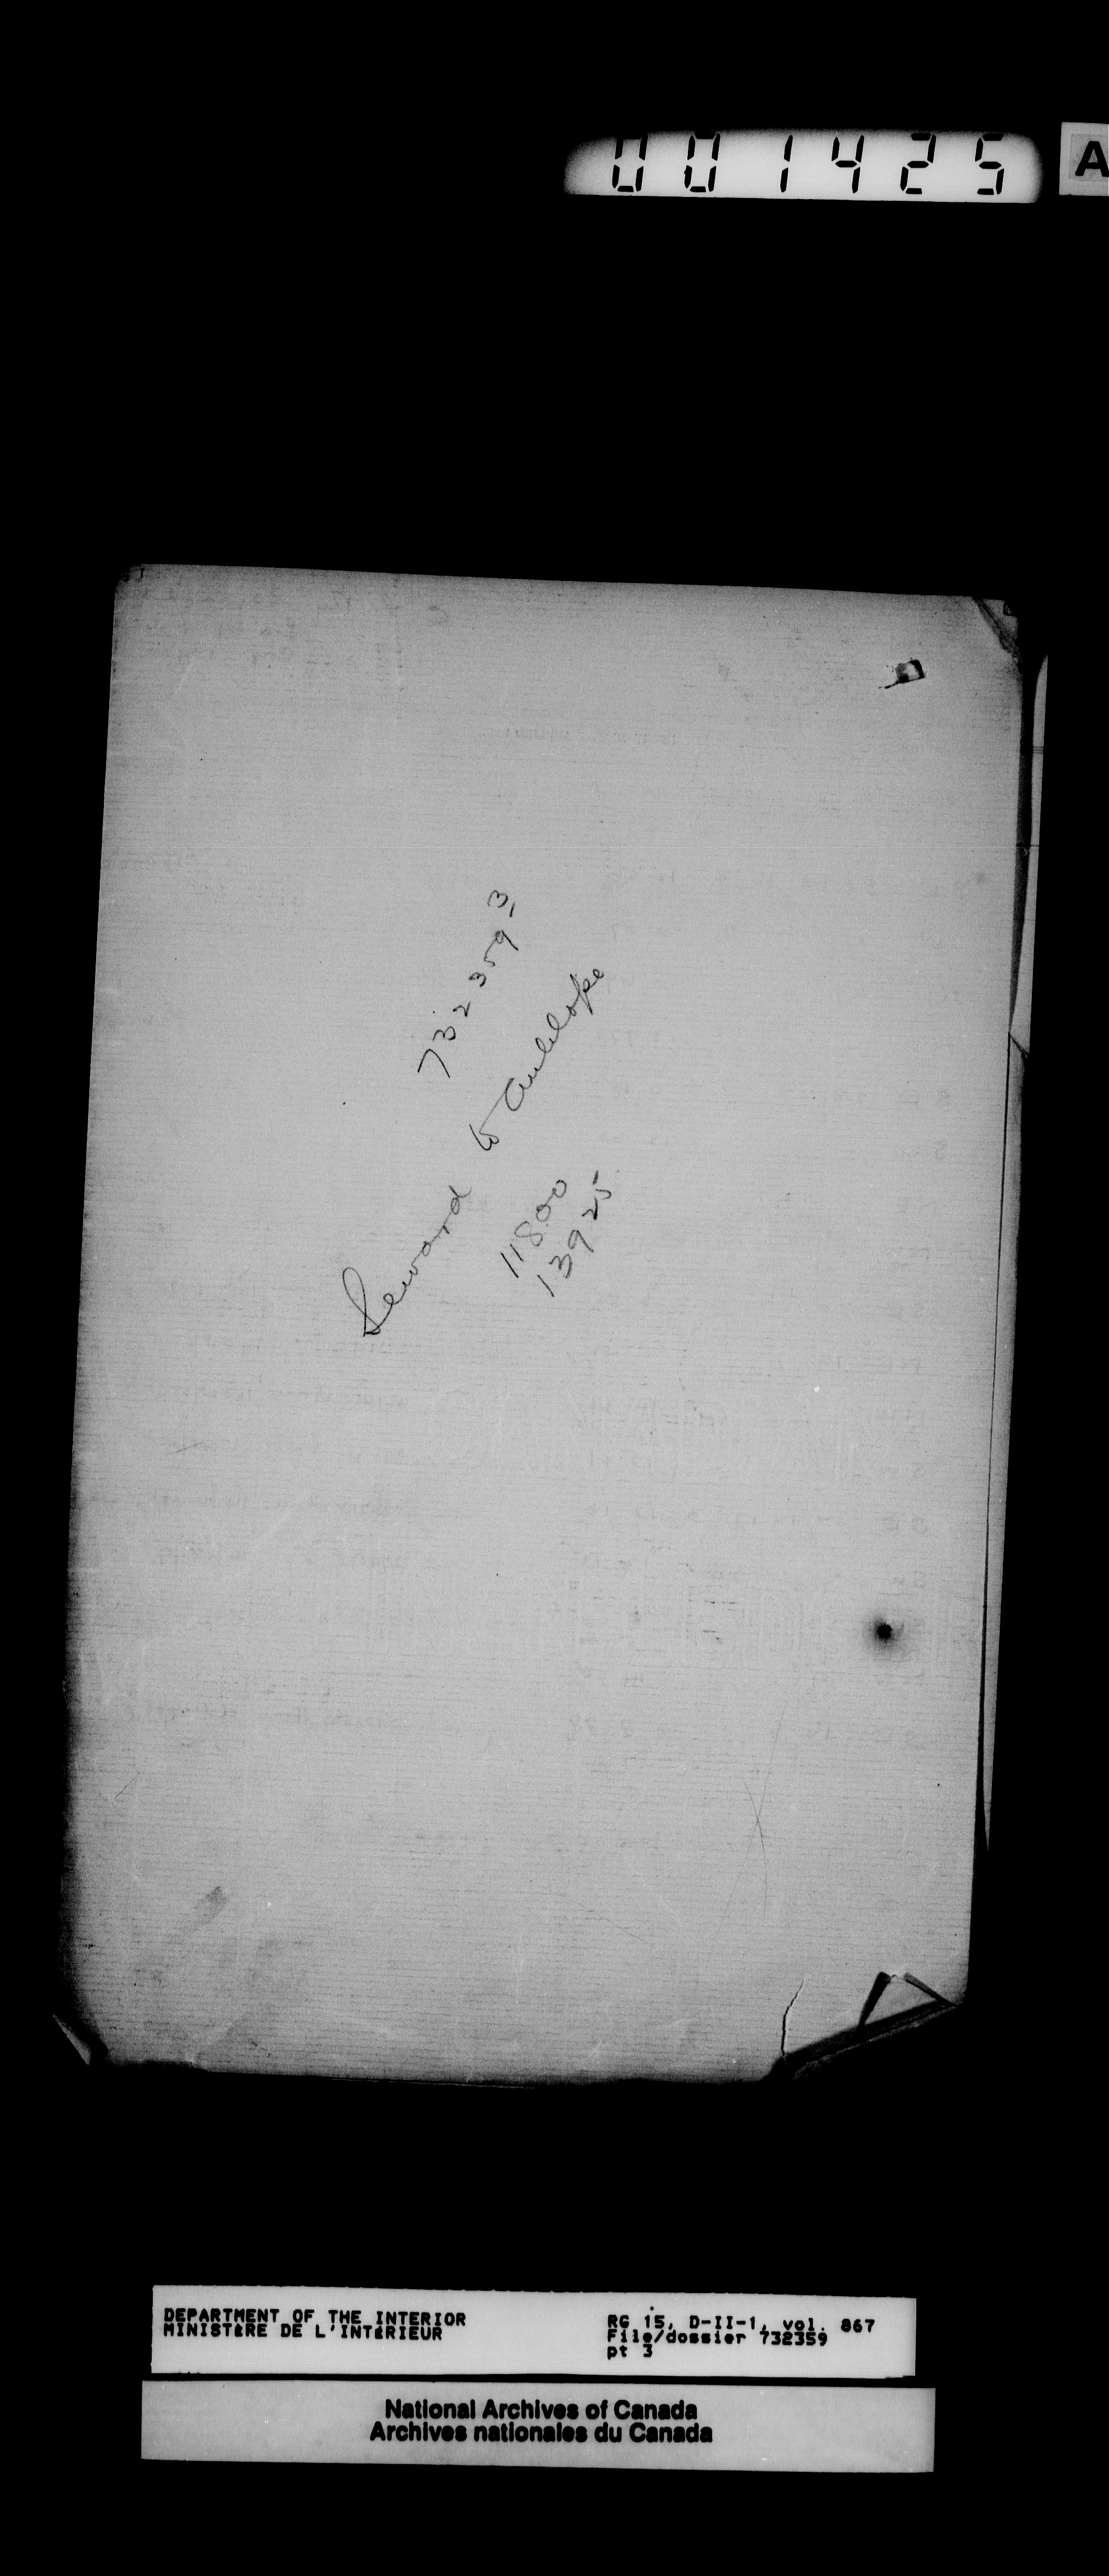 001425
A
732359 3,
Seward to Antelope
11800
13925
DEPARTMENT OF THE INTERIOR
MINISTÈRE DE L'INTÉRIEUR
RG 15, D-II-1, vol. 867
File/dossier 732359
pt 3
National Archives of Canada
Archives nationales du Canada